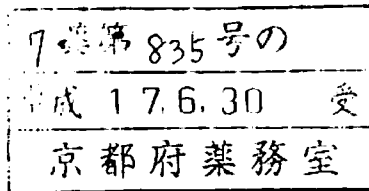 7薬第835号の
平成 17.6.30 受
京都府薬務室